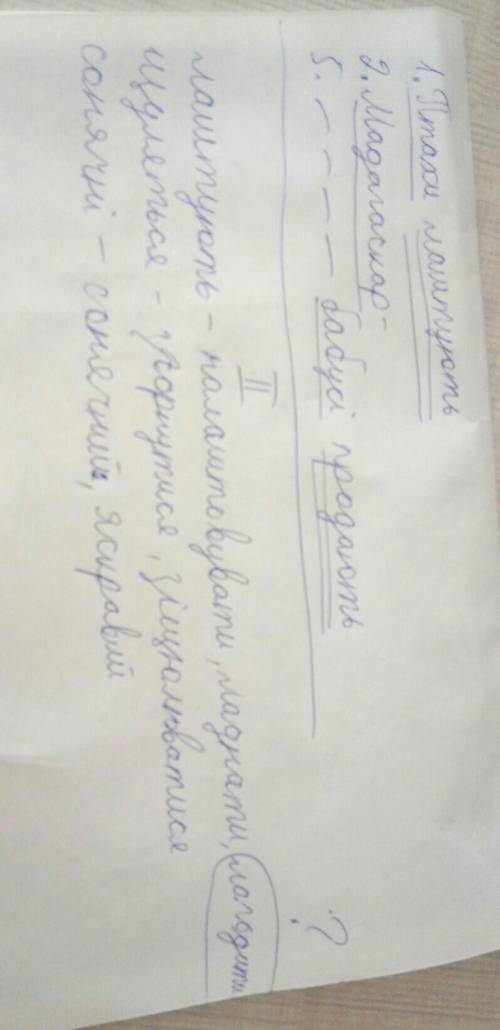 1. Птахи лаштують
2. Мадагаскар -
5. – – – – бабусі продають
II
лаштують – налаштовувати, ладнати, лагодити
щуляться – згорнутися, зіщулюватися
сонячні – сонячний, яскравий
?